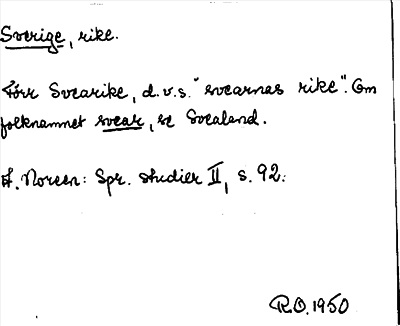 Sverige, rike.
Förr Svearike, d.v.s. "svearnas rike". Om
folknamnet svear, se Svealand.
A. Noreen: Spr. studier II, s. 92.
R.O. 1950